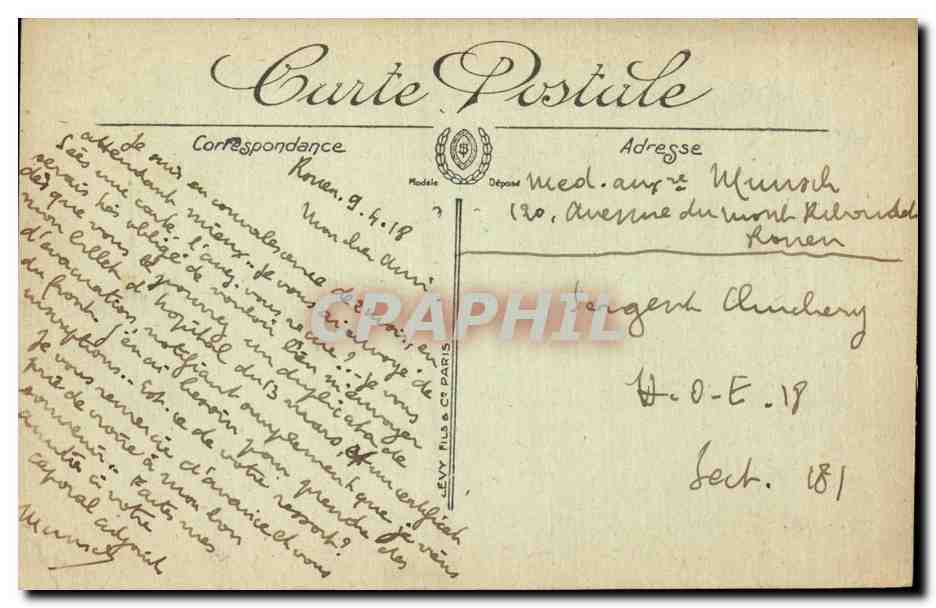 Carte Postale
Correspondance
Adresse
Modèle Déposé
Rouen, 9.4.18
Mon cher ami
Je suis en convalescence de 2 mois, en
attendant mieux. Je vous ai envoyé de
une carte. L'avez-vous reçue? - Je vous
serais très obligé de vouloir bien m'envoyer
dès que vous le pourrez un duplicata de
mon billet d'hôpital du 13 mars, et un certificat
d'évacuation, notifiant simplement que je viens
du front. J'en ai besoin pour prendre des
inscriptions. - Est-ce de votre ressort?
Je vous remercie d'avance et vous
prie de croire à mon bon
souvenir. - Faites mes
amitiés à votre
caporal adjoint
Munsch
LÉVY FILS & Cº PARIS
Med. auxre Munsch
120, Avenue du Mont Riboudet
Rouen
Sergent
H.O.E. 18
Sect. 181
CPAPHIL